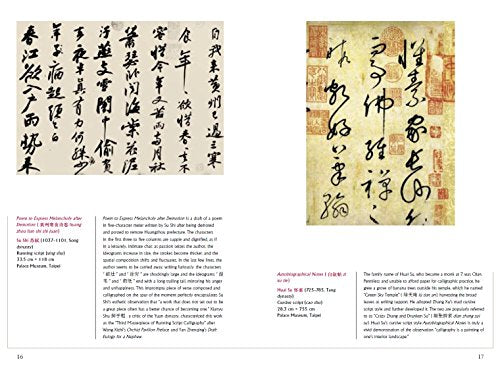 自我來黃州已過三寒
食年年欲惜春春不
容惜今年又苦雨兩月秋
蕭瑟臥聞海棠花泥
汙燕支雪闇中偷負
去夜半真有力何殊少
年子病起頭已白
春江欲入戶雨勢來
Poem to Express Melancholy after
Demotion
Su Shi 蘇軾 (1037–1101, Song
dynasty)
Running script (xing shu)
33.5 cm × 118 cm
Palace Museum, Taipei
Poem to Express Melancholy after Demotion is a draft of a poem
in five-character meter written by Su Shi after being demoted
and posted to remote Huangzhou prefecture. The characters
in the first three to five columns are supple and dignified, as if
in a leisurely, intimate chat; as passion seizes the author, the
ideograms increase in size, the strokes become thicker, and the
spatial composition shifts and fluctuates. In the last few lines, the
author seems to be carried away writing furiously: the characters
are shockingly large and the ideograms
with a long trailing tail mirroring his anger
and unhappiness. This impulsive piece of verse composed and
calligraphed on the spur of the moment perfectly encapsulates Su
Shi's esthetic observation that "a work that does not set out to be
a great piece often has a better chance of becoming one." Xianyu
Shu 鮮于樞, a critic of the Yuan dynasty, characterized this work
as the "Third Masterpiece of Running Script Calligraphy" after
Wang Xizhi's Orchid Pavilion Preface and Yan Zhenqing's Draft
Eulogy for a Nephew
16
懷素家長沙
幼而事佛經禪之
暇頗好筆翰
Autobiographical Notes (自敘帖 zi
xu tie)
Huai Su 懷素 (725–785, Tang
dynasty)
Cursive script (cao shu)
28.3 cm × 755 cm
Palace Museum, Taipei
The family name of Huai Su, who became a monk at 7 was Qian.
Penniless and unable to afford paper for calligraphic practice, he
grew a grove of banana trees outside his temple, which he named
"Green Sky Temple"
leaves as writing support. He adopted Zhang Xu's mad cursive
script style and further developed it. The two are popularly referred
to as "Crazy Zhang and Drunken Su"
su). Huai Su's cursive script style Autobiographical Notes is truly a
vivid demonstration of the observation that "calligraphy is a painting of
one's interior landscape."
17